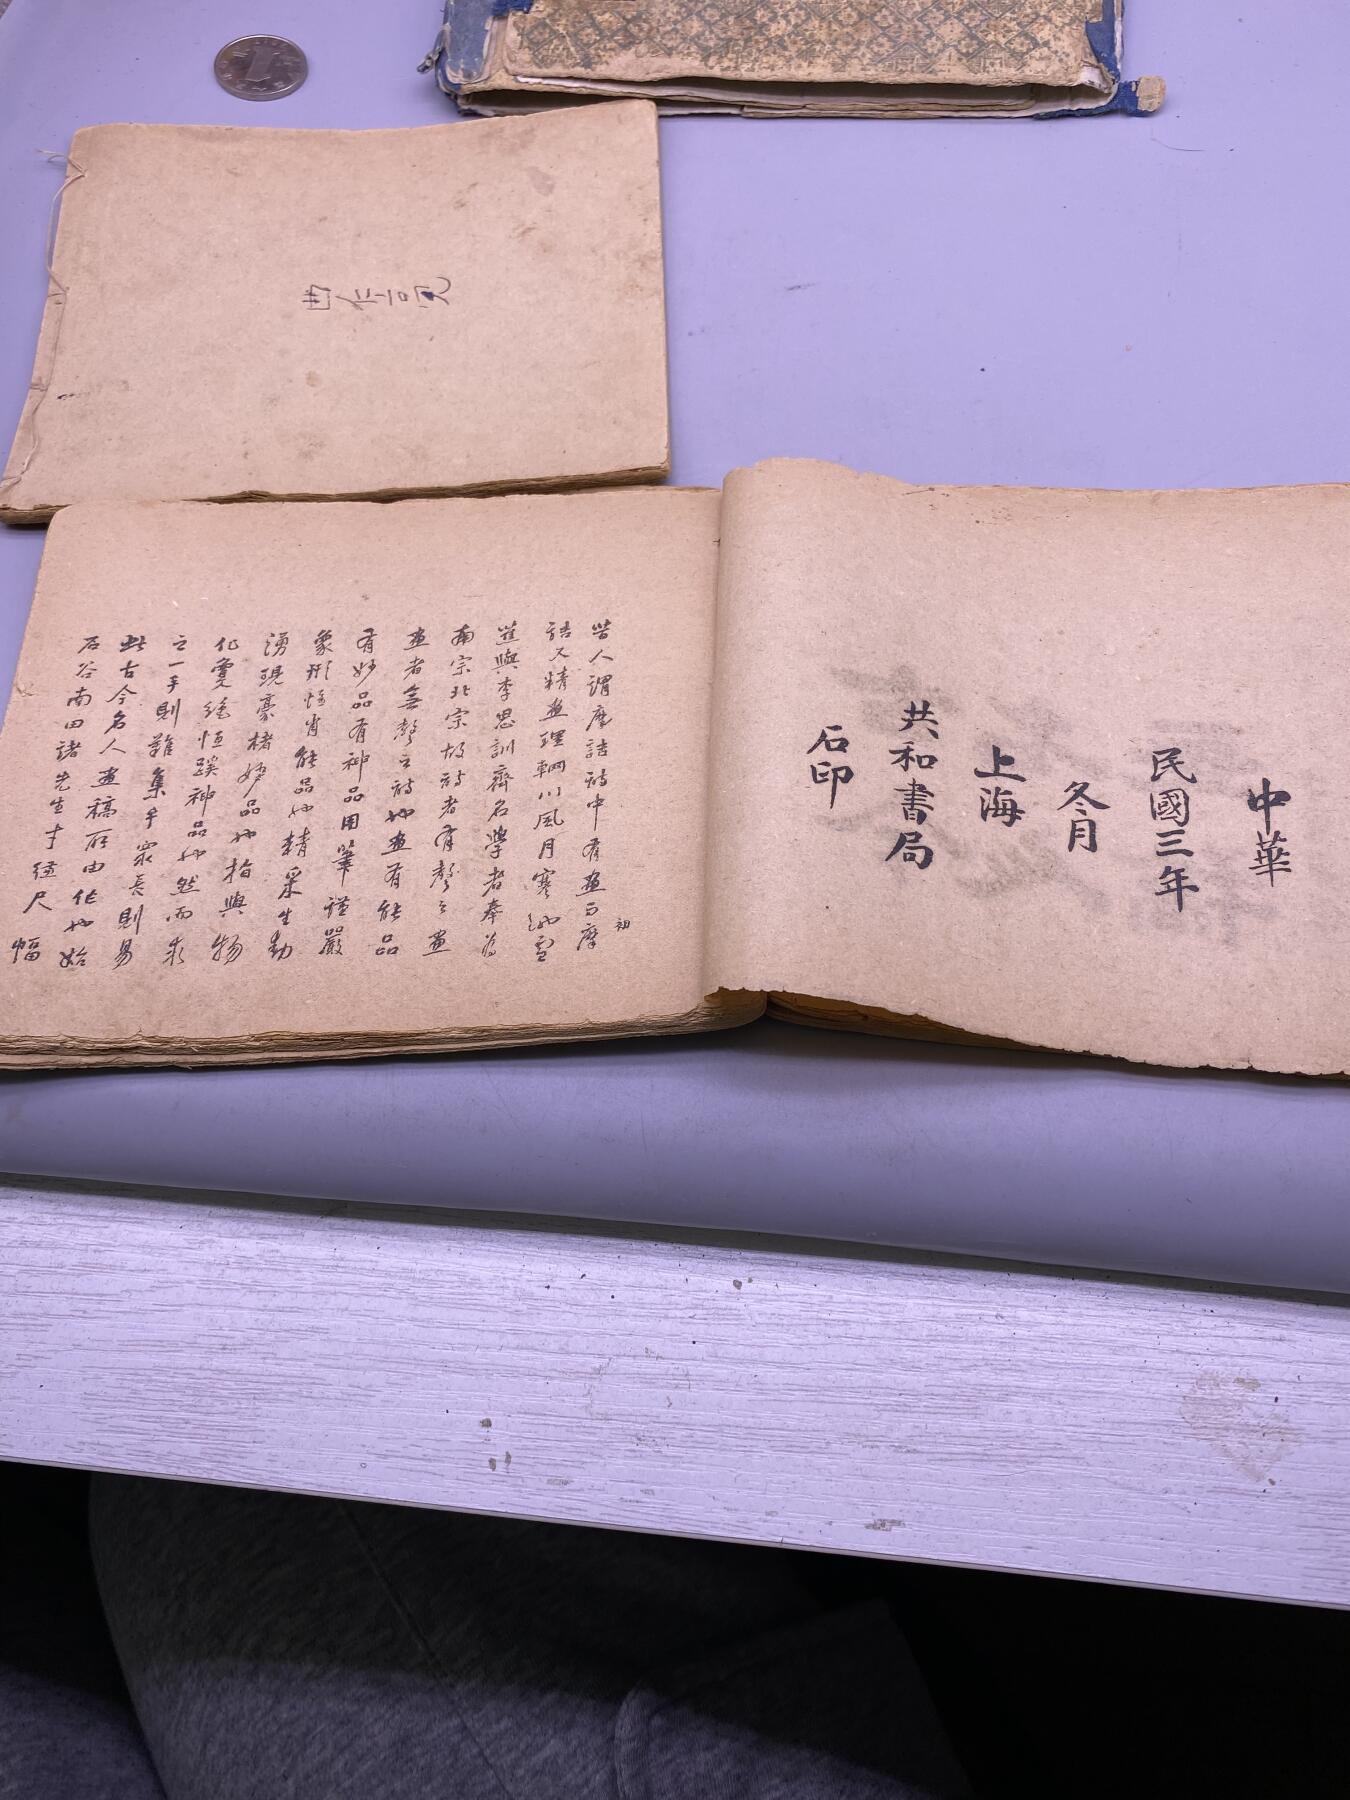 中華
民國三年
冬月
上海
共和書局
石印
初
昔人謂摩詰詩中有畫而摩
詰又精畫理輞川風月寒沍雪
道與李思訓齊名學者奉為
南宗北宗故詩者有聲之畫
畫者無聲之詩也畫有能品
有妙品有神品用筆謹嚴
象形惟肖能品也精采生動
湧現豪楮妙品也指與物
化變絕恒蹊神品也然而求
之一手則難集乎眾長則易
此古今名人畫稿所由作也始
石谷南田諸先生寸縑尺
幅